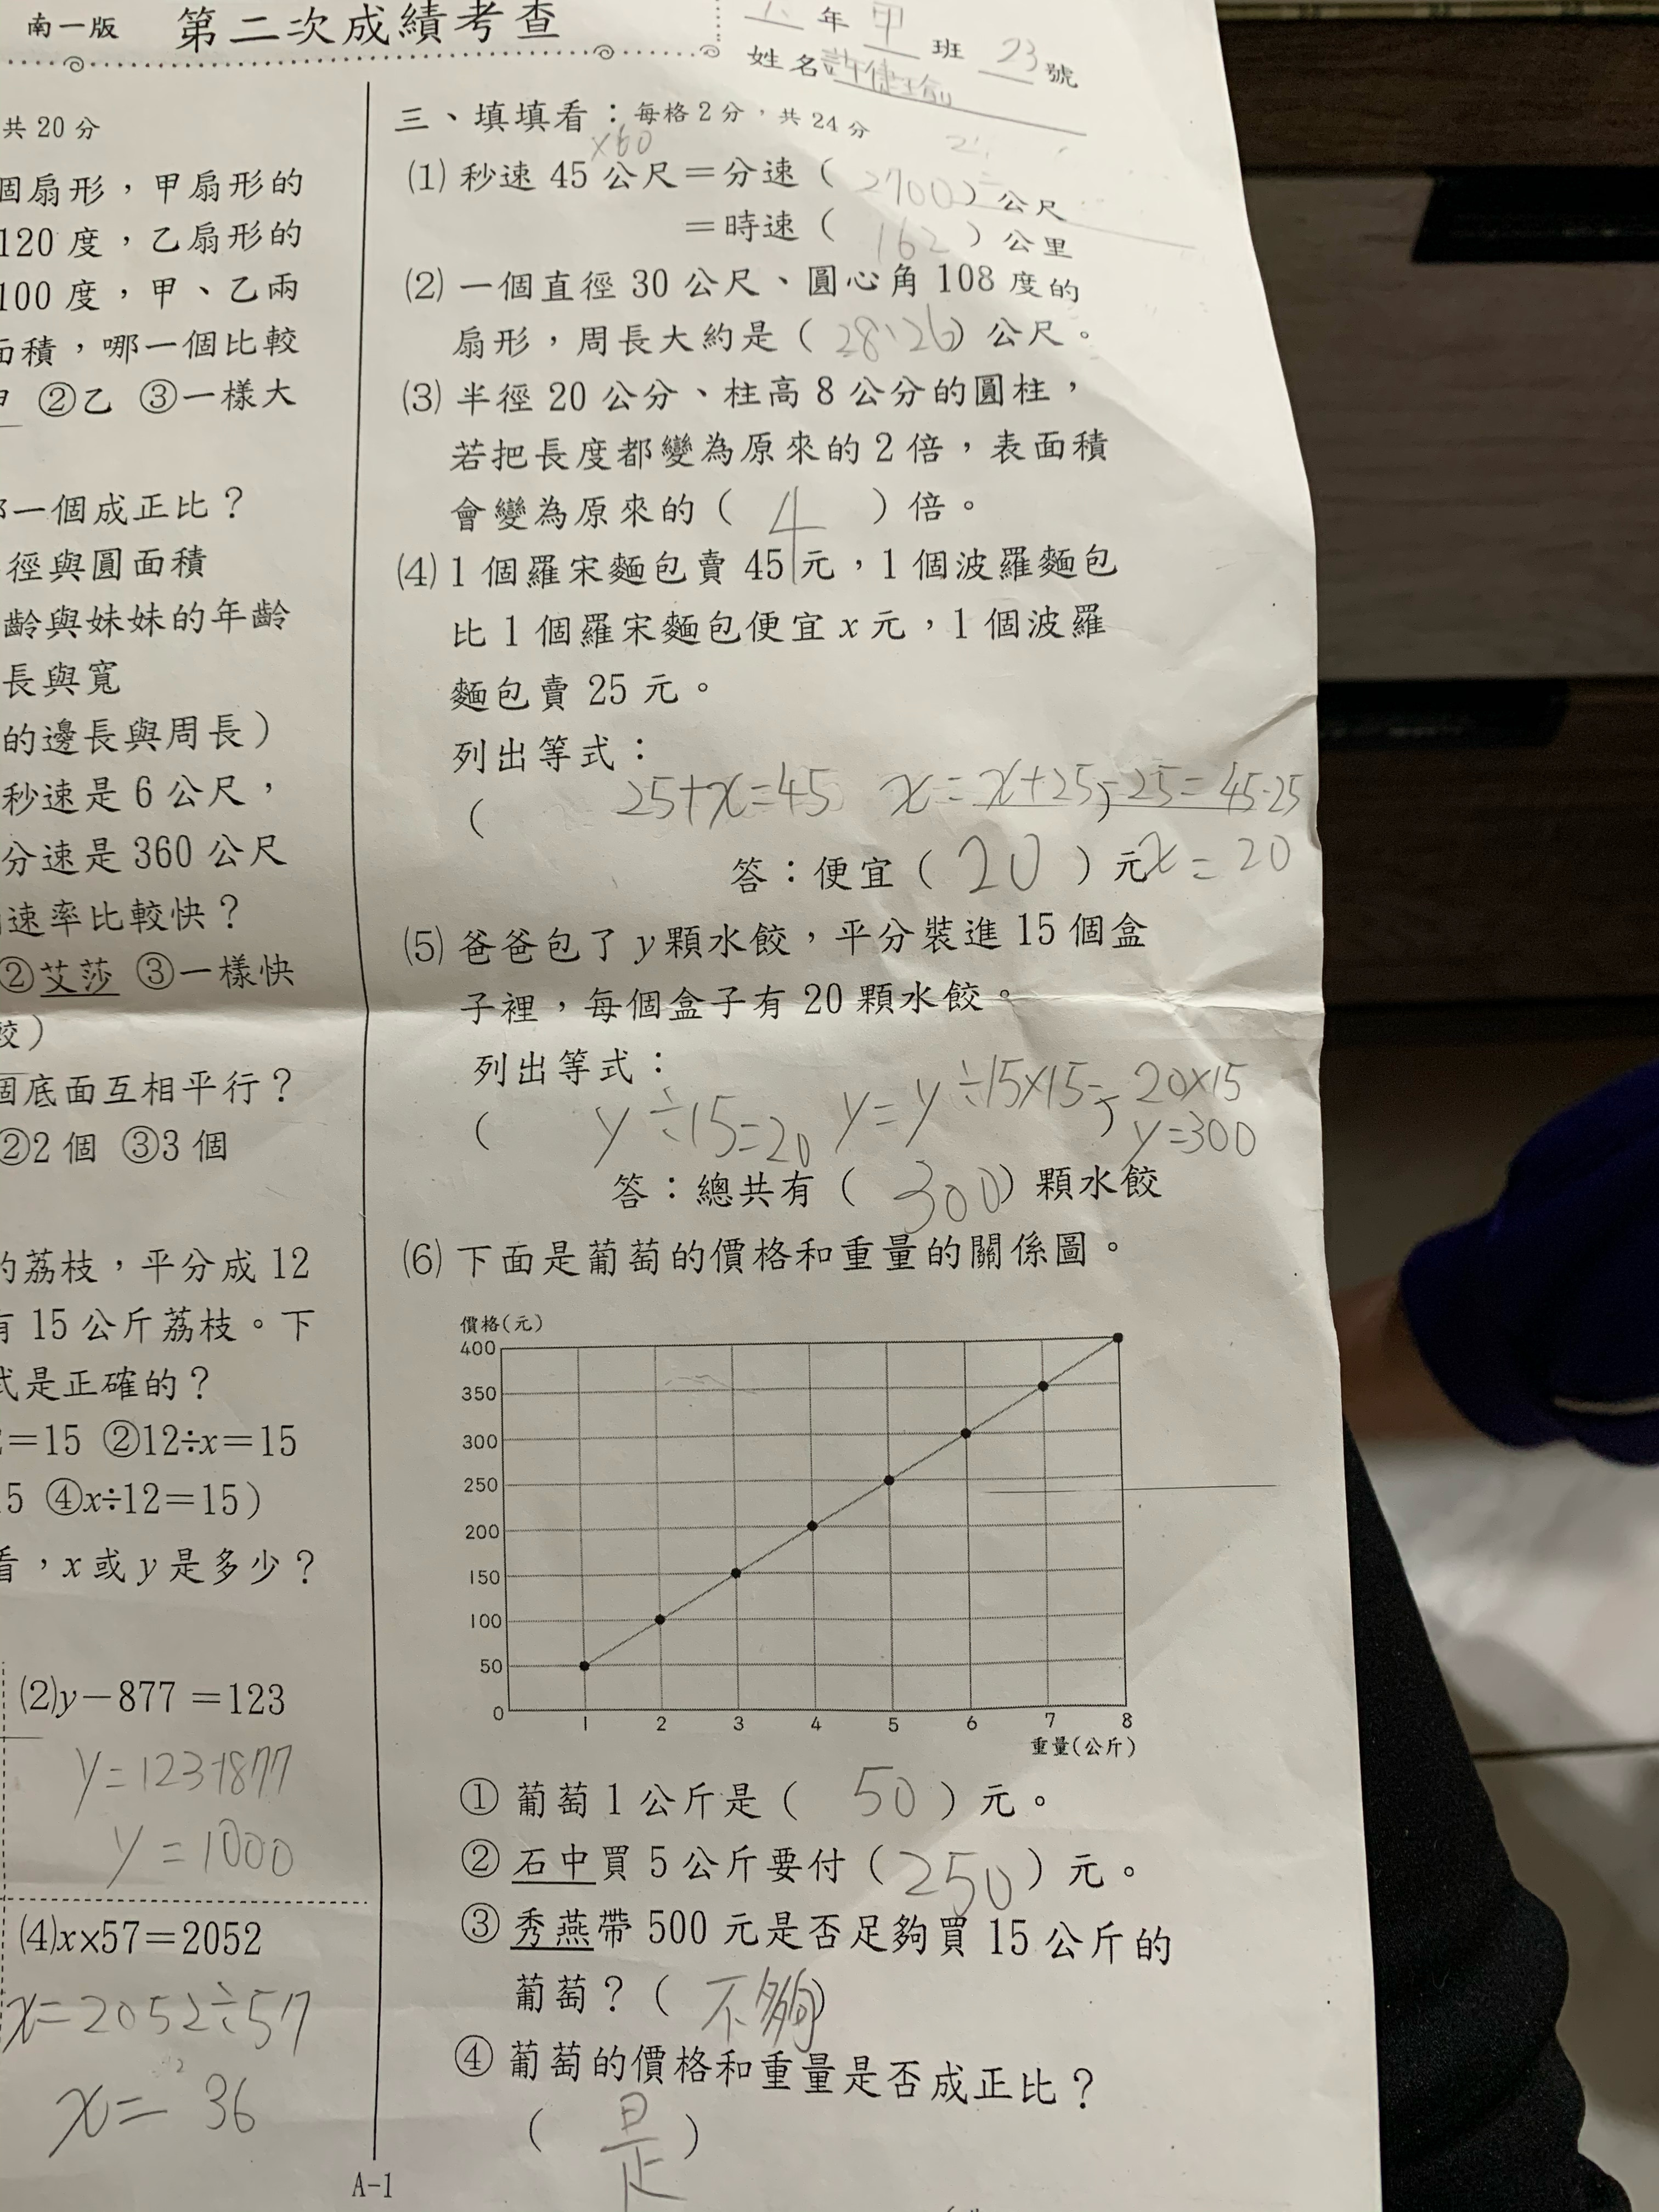 南一版 第二次成績考查
年 甲 班 23 號
姓名
共20分
個扇形，甲扇形的
120度，乙扇形的
100度，甲、乙兩
面積，哪一個比較
②乙 ③一樣大
一個成正比？
徑與圓面積
齡與妹妹的年齡
長與寬
的邊長與周長）
秒速是6公尺，
分速是360公尺
速率比較快？
②艾莎 ③一樣快
）
個底面互相平行？
②2個 ③3個
的荔枝，平分成12
有15公斤荔枝。下
式是正確的？
=15 ②12÷x=15
5 ④x÷12=15）
看，x或y是多少？
(2)y－877=123
y=123+877
y=1000
(4)x×57=2052
x=2052÷57
x=36
三、填填看：每格2分，共24分
×60
(1)秒速45公尺＝分速（2700）公尺
＝時速（162）公里
(2)一個直徑30公尺、圓心角108度的
扇形，周長大約是（28.26）公尺。
(3)半徑20公分、柱高8公分的圓柱，
若把長度都變為原來的2倍，表面積
會變為原來的（4）倍。
(4)1個羅宋麵包賣45元，1個波羅麵包
比1個羅宋麵包便宜x元，1個波羅
麵包賣25元。
列出等式：
（25+x=45 x=x+25-25=45-25）
答：便宜（20）元 x=20
(5)爸爸包了y顆水餃，平分裝進15個盒
子裡，每個盒子有20顆水餃。
列出等式：
（y÷15=20 y=y÷15×15=20×15）
y=300
答：總共有（300）顆水餃
(6)下面是葡萄的價格和重量的關係圖。
價格(元)
400
350
300
250
200
150
100
50
0
1 2 3 4 5 6 7 8
重量(公斤)
①葡萄1公斤是（50）元。
②石中買5公斤要付（250）元。
③秀燕帶500元是否足夠買15公斤的
葡萄？（不夠）
④葡萄的價格和重量是否成正比？
（是）
A-1